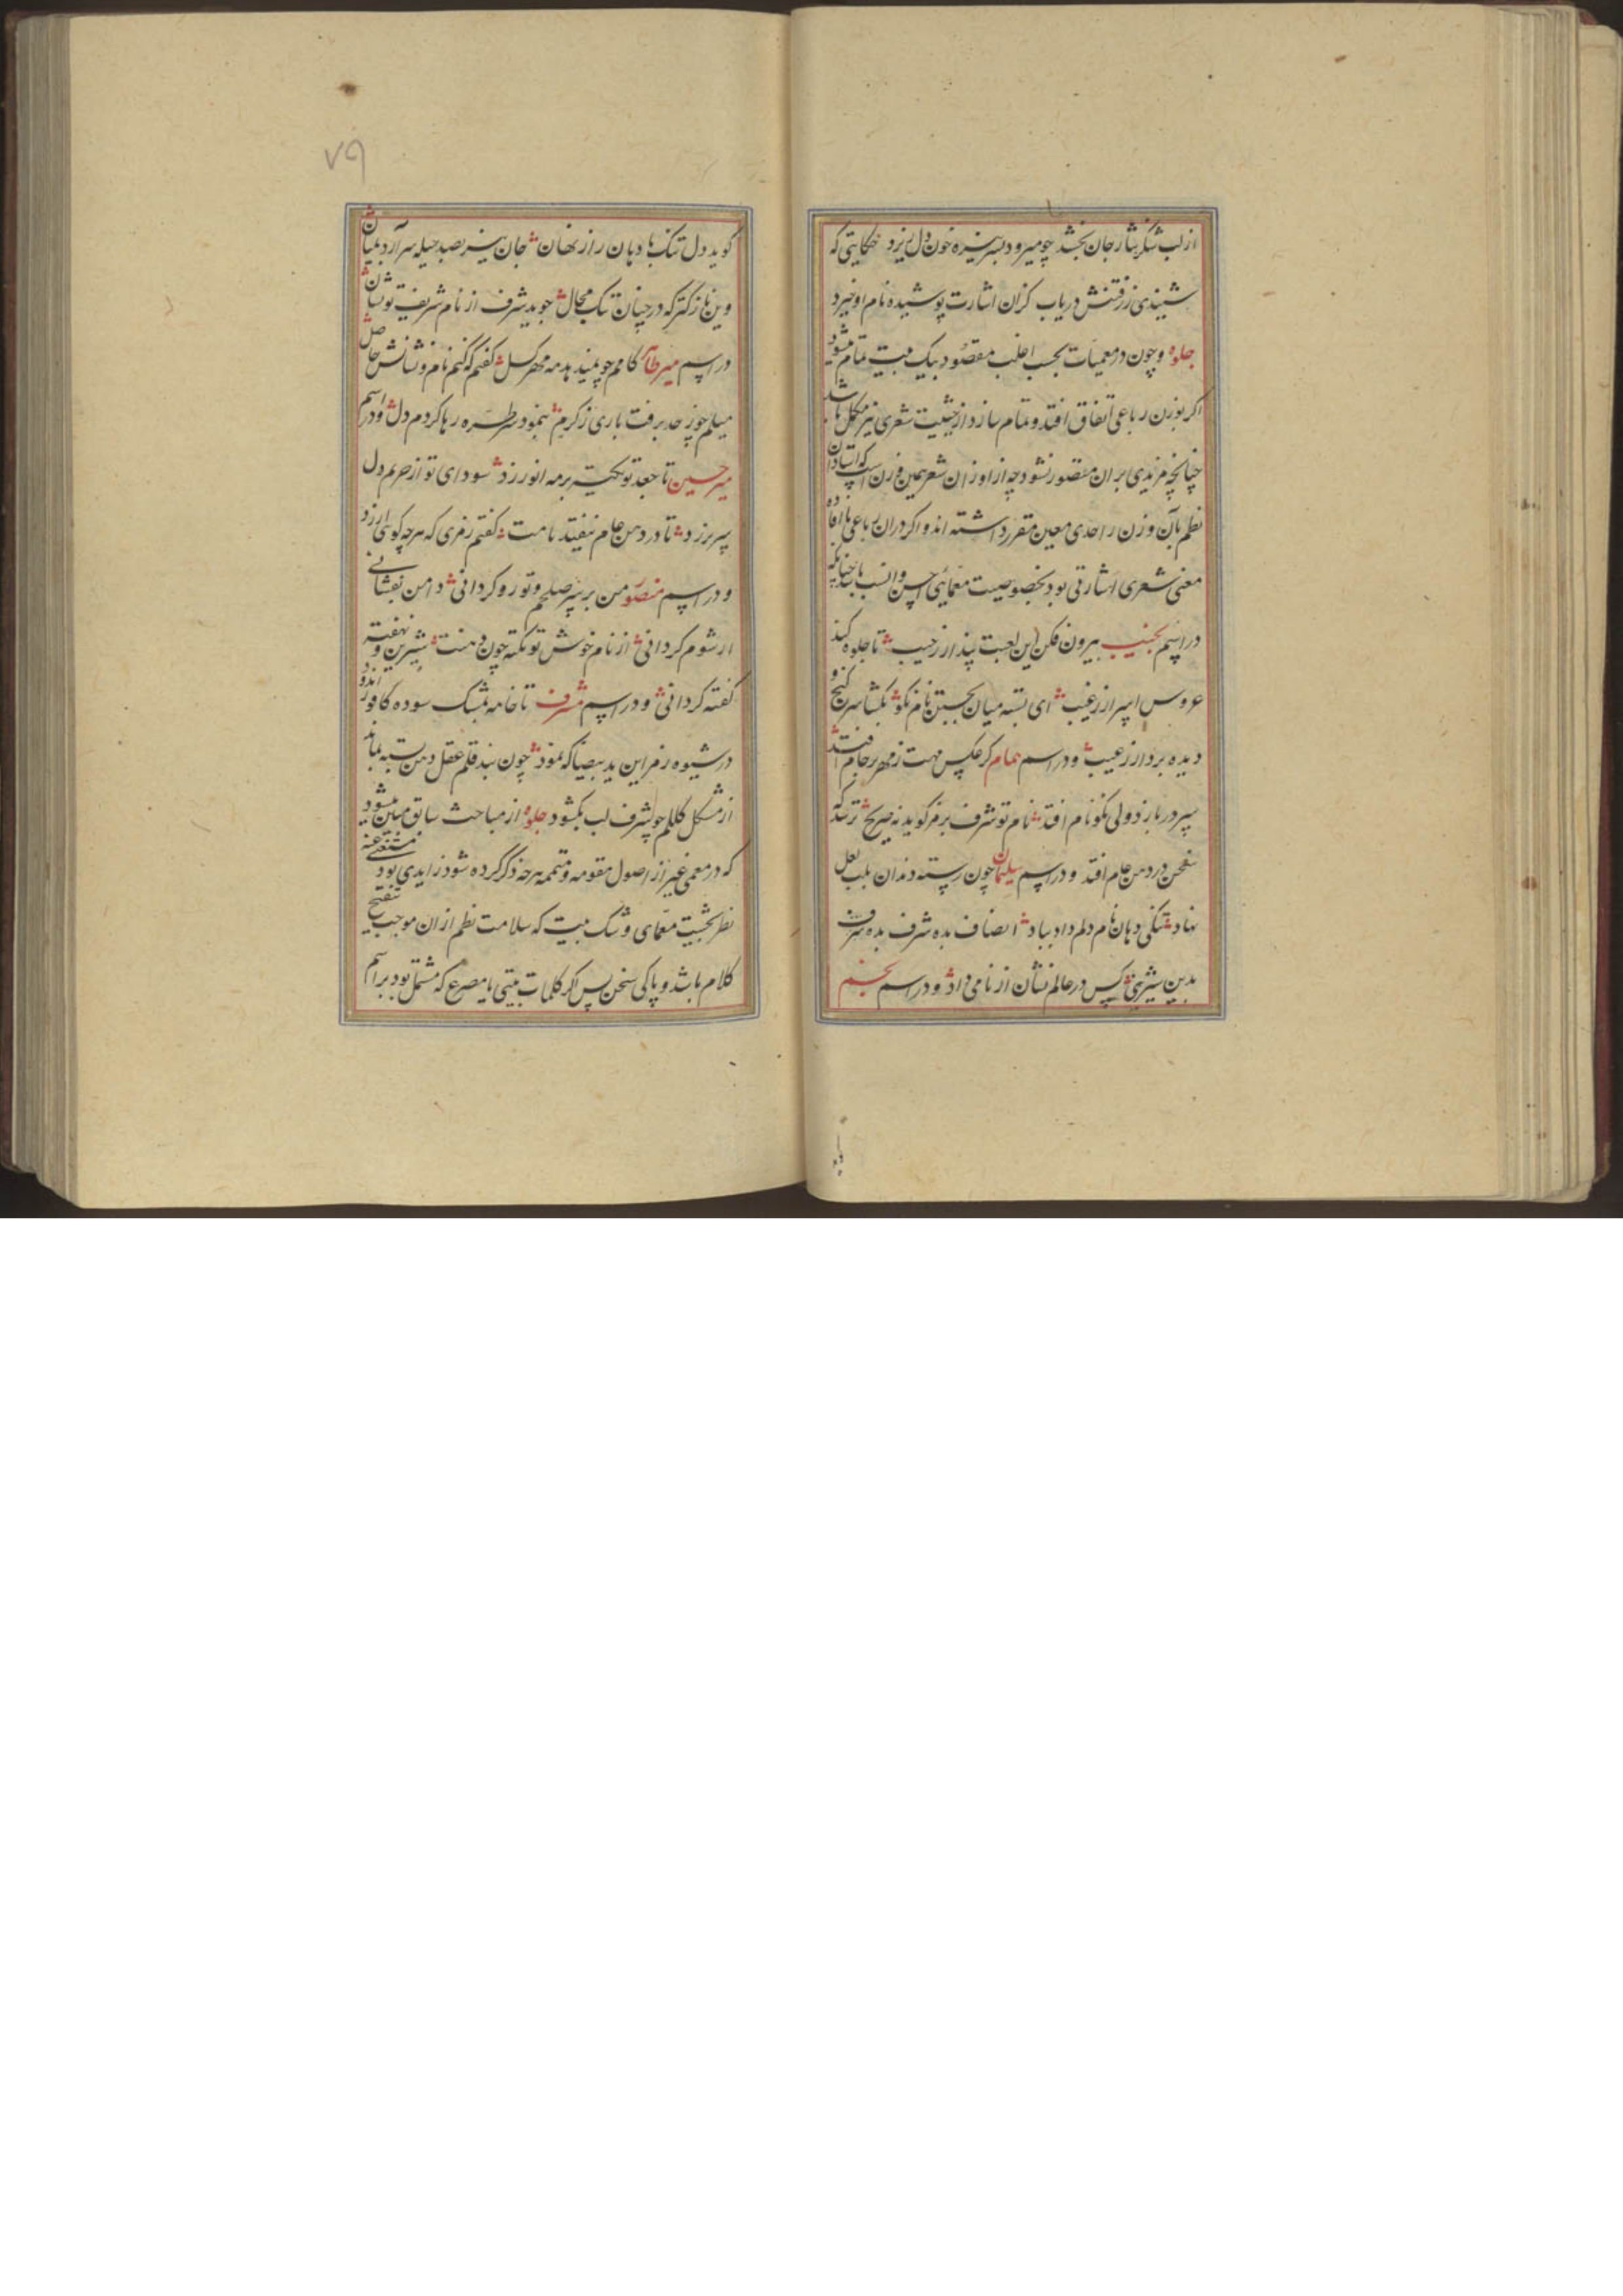 از لب شکر نثار جان بخشد چو میرود بسر نیزه خون دل ریزد حکایتی که
شنیدی ز رفتنش دریاب کزان اشارت پوشیده نام او خیزد
جلوه و چون در معمیات بحسب اغلب مقصود بیک بیت تمام میشود
اگر بوزن رباعی اتفاق افتد و تمام سازد از حیثیت شعری نیز مکمل باشد
چنانچه مزیدی بران متصور نشود چه از اوزان شعر همین وزن است که استادان
نظم بآن وزن را حدی معین مقرر داشته اند و اگر دران رباعی با افاده
معنی شعری اشارتی بود بخصوصیت معمائی احسن و انسب باشد چنانکه
در اسم نجیب بیرون فکن این لعبت پندار ز جیب تا جلوه کند
عروس اسرار ز غیب ای بسته میان بجستن نام نکو بگشا سر گنج و
دیده بردار ز عیب و در اسم همام گر عکس مهت ز مهر بر جام افتد
سپر در بازد ولی نکو نام افتد نام تو شرف برمز گوید نه صریح ترسد که
سخن در دهن عام افتد و در اسم سلیمان چون رسته دندان بلب لعل
نهاد تنگی دهان نام دلم داد بباد انصاف بده شرف بده شرف
بدین شیرینی کس در عالم نشان از نامی داد و در اسم نجم
۷۹
گوید دل تنک با دهان راز نهان جان نیز بصد حیله سر آرد بمیان
وین نازکتر که در چنان تنک مجال جوید شرف از نام شریف تو نشان
در اسم میر طاهر کامم چو بلند بد مه مهر گسل گفتم که کنم نام و نشانش حاصل
میلم چو ز حد برفت باری ز کرم بنمود سر طره رها کردم دل و در اسم
میر حسین تا جعد تو بر مه انور زد سودای تو از حرم دل
سر برزد تا در دهن عام نیفتد نامت گفتم رمزی که هر چه گوئی ارزد
و در اسم منصور من بر سر صلحم و تو رو گردانی دامن بفشانی
ار شوم گردانی از نام خوش تو نکته چون دهنت شیرین و نهفته
گفته گردانی و در اسم شرف تا خامه بمشک سوده کافور اندود
در شیوه رمز این ید بیضا که نمود چون بند قلم عقل دهن بسته بماند
از مشکل کلکم چو شرف لب بگشود جلوه از مباحث سابق مبین میشود
که در معمی غیر از اصول مقومه و متممه هرچه ذکر کرده شود زایدی بود مستغنی عنه
نظر بحیثیت معمای و شک نیست که سلامت نظم ازان موجب تنقیح
کلام باشد و پاکی سخن پس اگر کلمات بیتی یا مصرع که مشتمل بود بر اسم